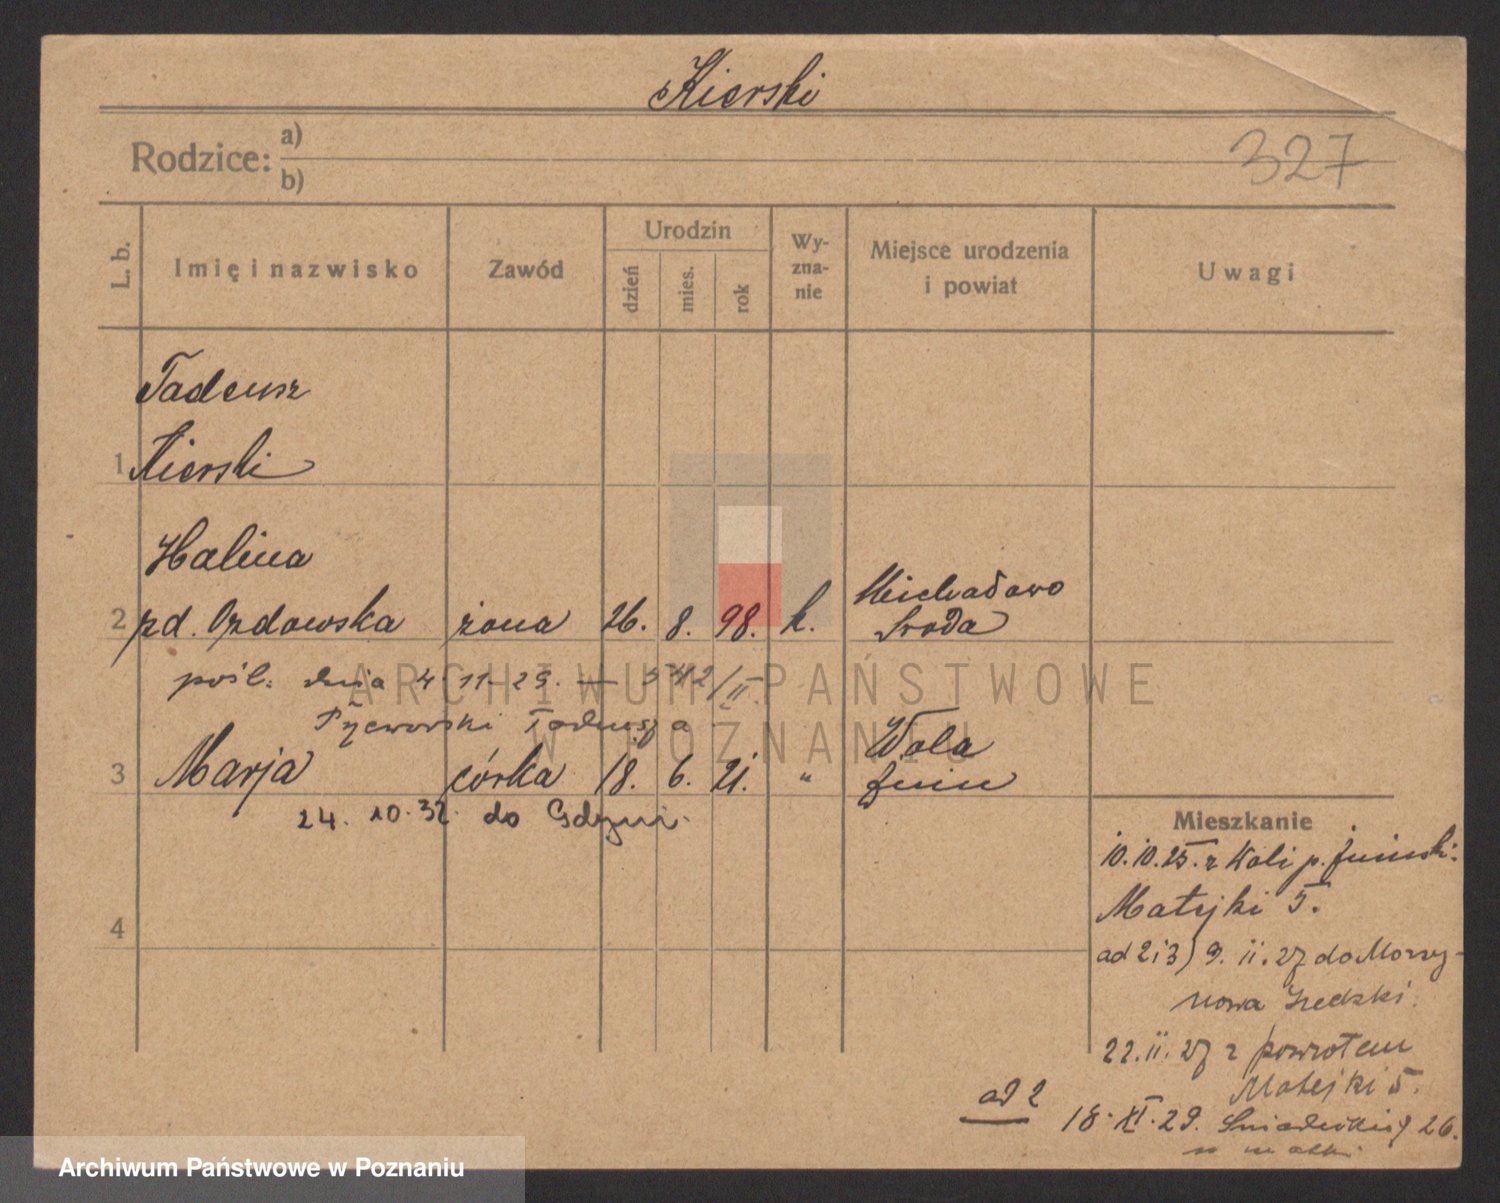 Kierski
327
Rodzice: a)
b)
L. b.
Imię i nazwisko
Zawód
Urodzin
dzień
mies.
rok
Wy-
zna-
nie
Miejsce urodzenia
i powiat
Uwagi
Tadeusz
1 Kierski
Halina
2 zd. Ozdowska żona 26. 8. 98. k. Michałowo
Środa
pośl. dnia 4. 11. 29. — 542/II
Tadeusza
3 Marja córka 18. 6. 21. " Wola
Żnin
24. 10. 32. do Gdyni.
4
Mieszkanie
10.10.25. z Woli p. żniński.
Matejki 5.
ad 2 i 3) 9. ii. 27 do Morzy-
nowa
22. ii. 27 z powrotem
Matejki 5.
ad 2
18. XI. 29. Śniadeckich 26.
ARCHIWUM PAŃSTWOWE
W POZNANIU
Archiwum Państwowe w Poznaniu